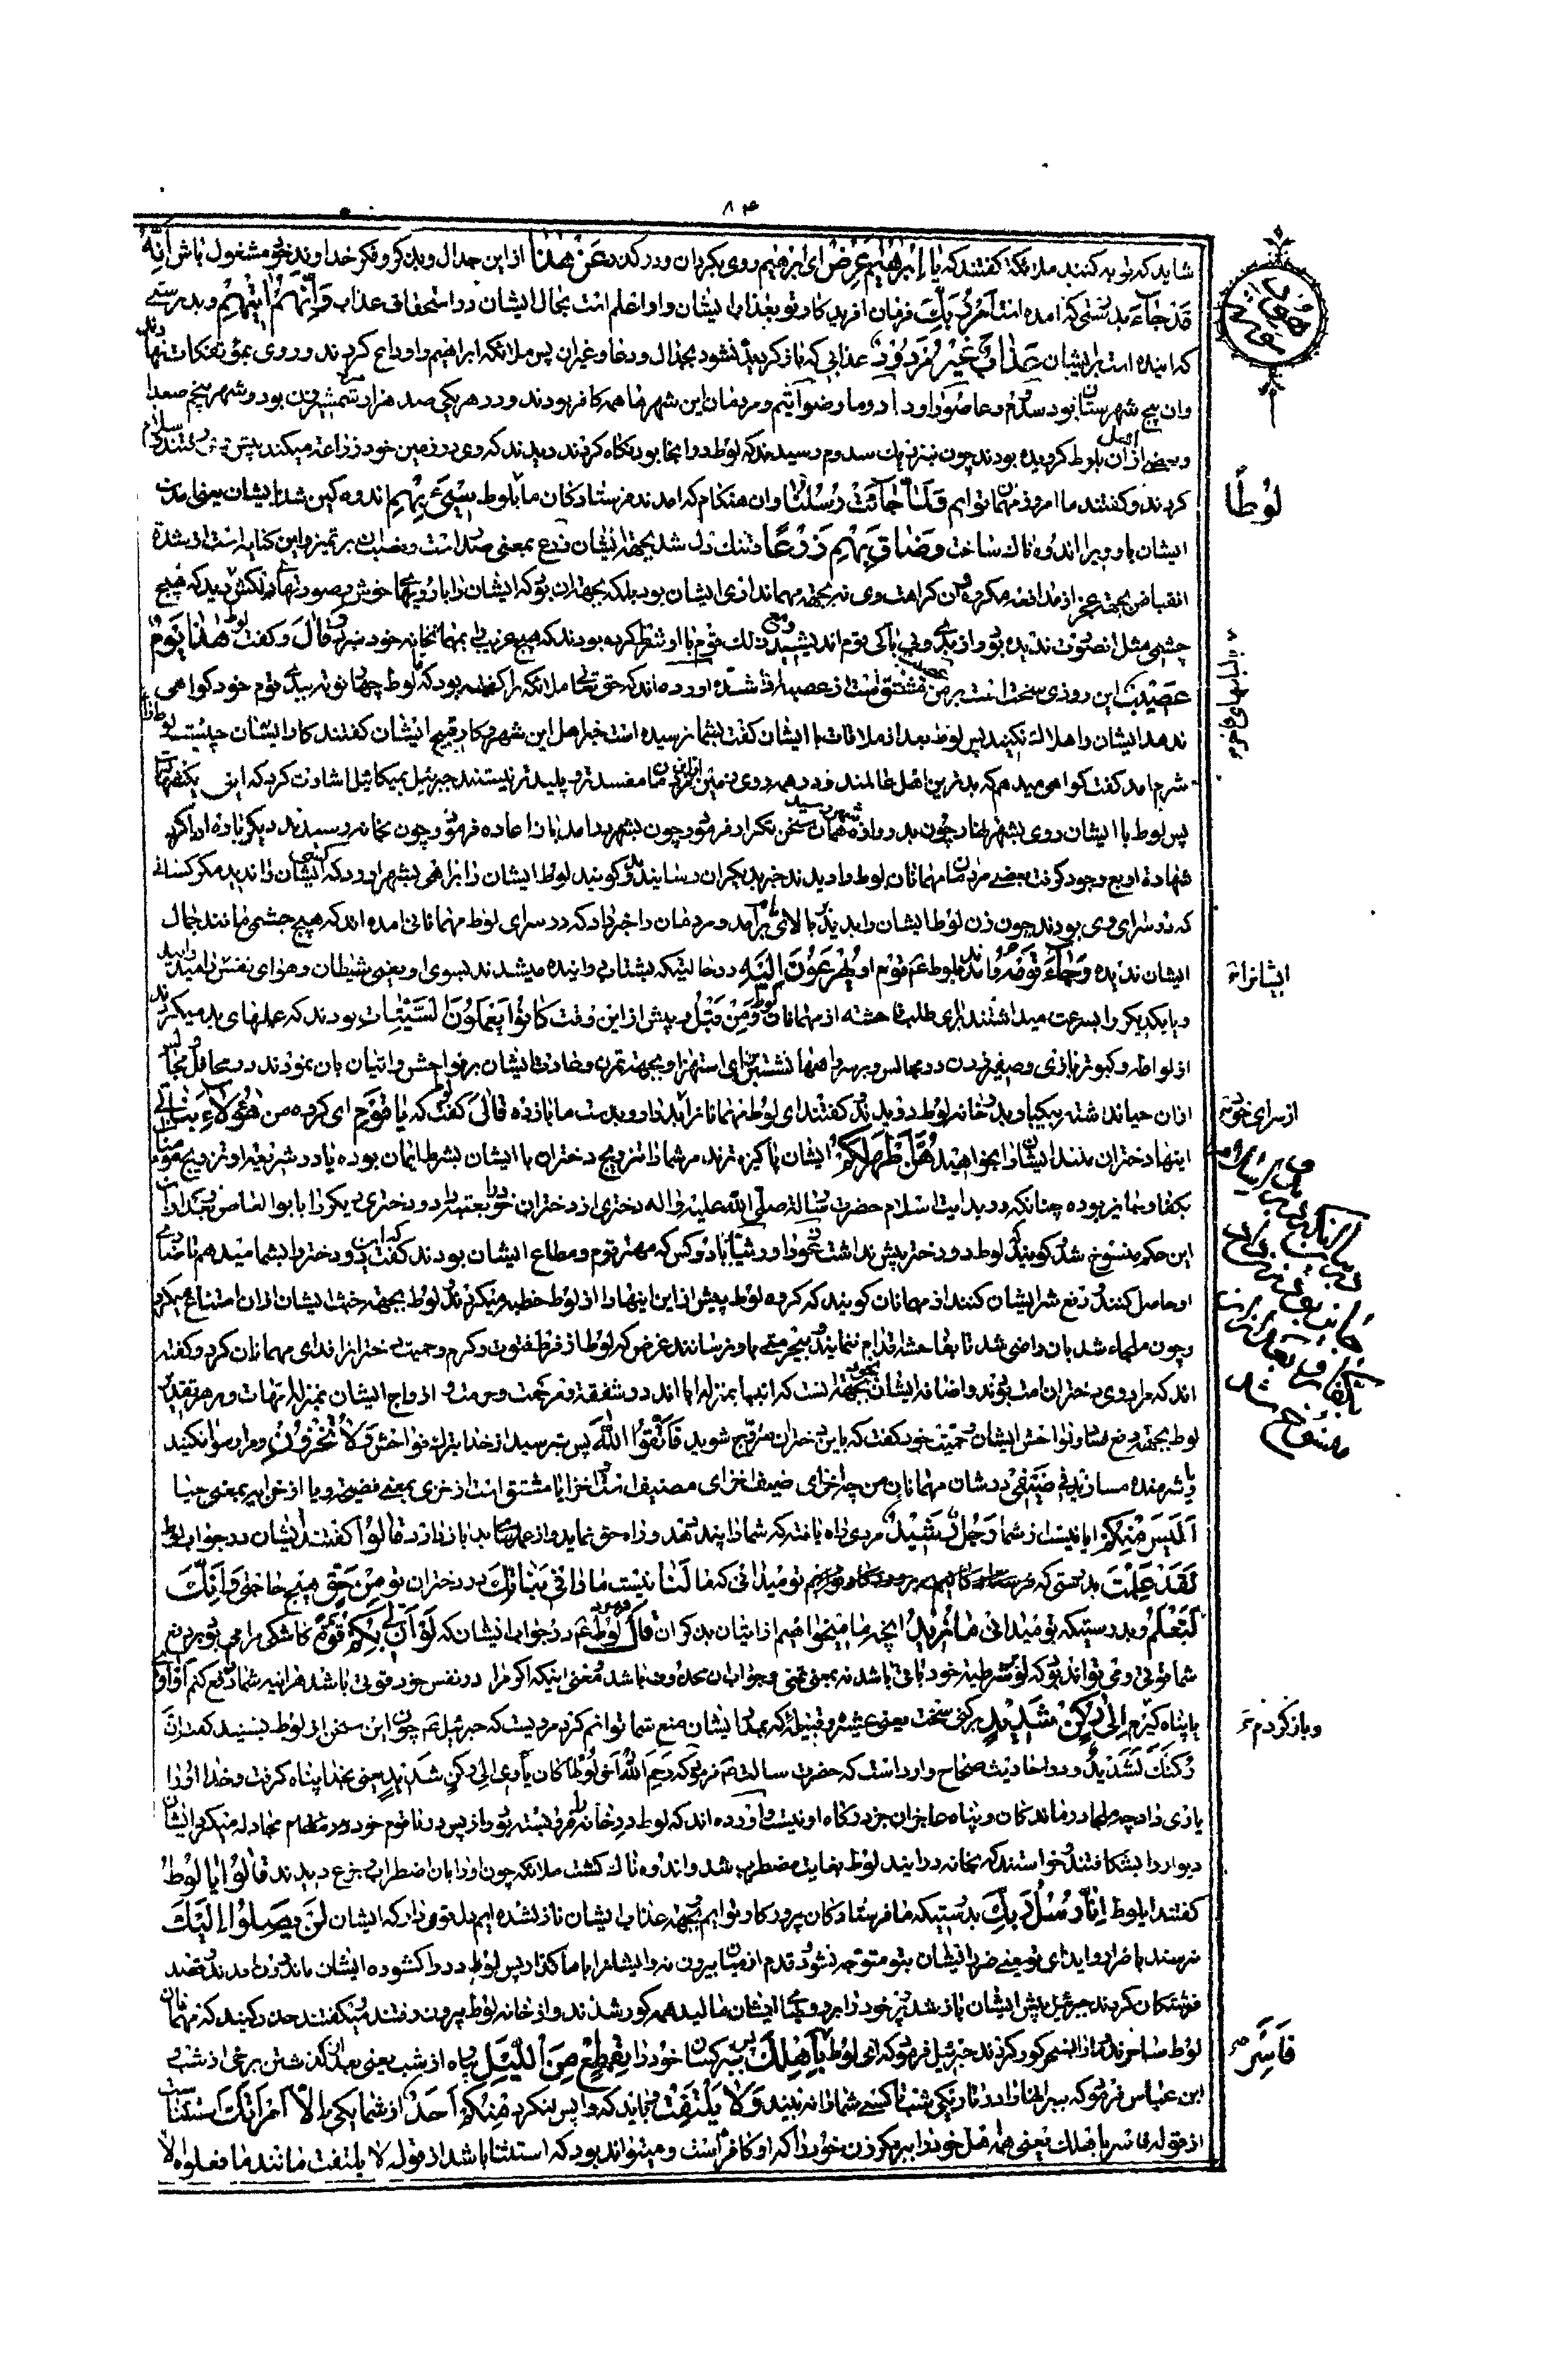 ۸۴
شاید که توبه کنند ملائکه گفتند که یا إبرهیم عرض ای ابرهیم روی بگردان و درگذر عن هذا ازین جدال و بذکر و فکر خداوند خود مشغول باش إنه
قد جاء بدرستی که آمده است امر ربک فرمان آفریدگار تو بعذاب ایشان و او اعلم است بحال ایشان در استحقاق عذاب و إنهم اتیهم و بدرستی
که آینده است بر ایشان عذاب غیر مردود عذابی که باز گردیده نشود بجدال و دعا و غیر آن پس ملائکه ابراهیم را وداع کردند و روی بمؤتفکات نهادند
وان پنج شهرستان بود سدوم و عامورا و دادوما و ضوایم و مردمان این شهرها همه کافر بودند و در هر یکی صد هزار شمشیرزن بود و شهر پنجم صعدا
و بعضی از اهل آن بلوط گرویده بودند چون بنزدیک سدوم رسیدند که لوط در آنجا بود نگاه کردند دیدند که وی در زمین خود زراعت میکند پس
کردند و گفتند ما امروز مهمان توایم و لما جائت رسلنا وان هنگام که آمدند فرستادگان ما لوطا بلوط سیئ بهم اندوهگین شد بایشان یعنی آمدن
ایشان او را اندوه ناک ساخت و ضاق بهم ذرعا و تنک دل شد بجهت ایشان ذرع بمعنی صدر است و نصب آن بر تمیز و این کنایه است از شدة
انقباض بجهت عجز از مدافعه مکروه و آن کراهت وی نه بجهت مهمانداری ایشان بود بلکه بجهت آن بود که ایشان را با رویهای خوش و صورتهای دلکش دید که هیچ
چشمی مثل آن صورت ندیده بود و از بدی و بی باکی قوم اندیشید و قال و گفت لوط هذا یوم
عصیب این روزی سخت است بر من مشتق است از عصبه اذا شده آورده اند که حق تعالی ملائکه را گفته بود که تا لوط چهار نوبت ببدی قوم خود گواهی
ندهد ایشان را هلاک نکنید پس لوط بعد از ملاقات با ایشان گفت بشما نرسیده است خبر اهل این شهر و کار قبیح ایشان گفتند کار ایشان چیست لوط را
شرم آمد گفت گواهی میدهم که بدترین اهل عالمند و در همه روی زمین از این مردم مفسدتر و پلیدتر نیستند جبرئیل بمیکائیل اشارت کرد که این یک گواهی
پس لوط با ایشان روی بشهر نهاد و چون بدروازه شهر رسید همان سخن تکرار فرمود و چون بشهر درآمد باز اعاده فرمود و چون بخانه رسیدند دیگر باره ادا کرد
شهادة اربع وجود گرفت بعضی مردمان مهمانان لوط را دیدند خبر بدیگران رسانیدند و گویند لوط ایشان را از راهی بشهر آورد که هیچکس ایشان را ندید مگر کسانی
که در سرای وی بودند چون زن لوط ایشان را بدید بر بالای بام برآمد و مردمان را خبر داد که در سرای لوط مهمانانی آمده اند که هیچ چشمی مانند جمال
ایشان ندیده و جاء قومه و آمدند بلوط ع قوم او یهرعون إلیه در حالتی که بشتاب رانیده میشدند بسوی او یعنی شیطان و هوای نفس
و یا یکدیگر را بسرعت میداشتند برای طلب فاحشه از مهمانان لوط و من قبل و پیش از این وقت کانوا یعملون السیئات بودند که عملهای بد میکردند
از لواطه و کبوتربازی و صفیر زدن در مجالس و بر سر راهها نشستن برای استهزا و بجهت تمرن و عادت ایشان بر فواحش و اتیان بآن نمودند در محافل مجالس
ازان حیا نداشته یکبار بدر خانه لوط دویدند و گفتند ای لوط مهمانان را بدر آور و بدست ما بازده قال گفت لوط که یا قوم ای گروه من هؤلاء بناتی
اینها دختران منند ایشان را بخواهید هن أطهر لکم ایشان پاکیزه ترند مر شما را تزویج دختران با ایشان بشرط ایمان بوده یا در شریعت او تزویج مؤمنات
بکفار جایز بوده چنانکه در بدایت اسلام حضرت رسالة صلی الله علیه و آله دختری از دختران خود بعتبه داد و دختر دیگر را بابو العاص و بعد ازان
این حکم منسوخ شد و گویند لوط دو دختر بیش نداشت زعورا و رشیا و دو کس که مهتر قوم و مطاع ایشان بودند گفت این دو دختر را بشما میدهم تا رضای
او حاصل کنند و دفع شر ایشان کنند از مهمانان گویند که گروه لوط پیش از این اینها را از لوط خطبه میکردند و لوط بجهت خبث ایشان ازان امتناع میکرد
و چون ملجاء شد بان راضی شد تا بفاحشه اقدام ننمایند و بیحرمتی باو نرسانند غرض که لوط از فرط فتوت و کرم و حمیت دختران را فدای مهمانان کرد و گفته
اند که مراد وی دختران امت بودند و اضافه ایشان بخود بجهة آنست که انبیا بمنزله آباءاند در شفقت و مرحمت و حرمت و ازواج ایشان بمنزله امهات و بهر تقدیر
لوط بجهت دفع فساد و فواحش ایشان بحمیت خود گفت که باین دختران متزوج شوید فاتقوا الله پس بترسید از خدا بترک فواحش و لا تخزون و مرا رسوا نکنید
یا شرمنده مسازید فی ضیفی در شان مهمانان من چه اخزای ضیف اخزای مضیف است و اخزا یا مشتق است از خزی بمعنی فضیحت و یا از خزایه بمعنی حیا
ألیس منکم ایا نیست از شما رجل رشید مردی راه یافته که شما را پند دهد و راه حق نماید و از عملهای بد باز دارد قالوا گفتند ایشان در جواب لوط
لقد علمت بدرستی که تو میدانی که ما لنا نیست ما را فی بناتک در دختران تو من حق هیچ حاجتی و إنک
لتعلم و بدرستیکه تو میدانی ما نرید آنچه ما میخواهیم از اتیان بذکران قال لوط ع در جواب ایشان که لو أن لی بکم قوة کاشکی مرا می بودی بدفع
شما قوتی و می تواند بود که لو شرطیه خود باقی باشد نه بمعنی تمنی و جواب آن محذوف باشد بمعنی اینکه اگر مرا در نفس خود قوتی باشد هر اینه شما را دفع کنم أو آوی
یا پناه گیرم إلی رکن شدید برکنی سخت یعنی عشیره و قبیله که بمدد ایشان منع شما توانم کرد مرویست که جبرئیل ع چون این سخن از لوط بشنید گفت ان
رکنک لشدید و در احادیث صحاح وارد است که حضرت رسالت ص فرمود که رحم الله أخی لوطا کان یأوی الی رکن شدید یعنی بخدا پناه گرفت و خدا او را
یاری داد چه ملجاء درماندگان و پناه عاجزان جز درگاه او نیست و آورده اند که لوط در خانه را فرو بسته بود و از پس در با قوم خود در مقام مجادله میکرد ایشان
دیوار را بشکافتند و خواستند که بخانه درایند لوط بغایت مضطرب شد و اندوه ناک گشت ملائکه چون او را بان اضطراب و جزع دیدند قالوا یا لوط
گفتند ایلوط إنا رسل ربک بدرستیکه ما فرستادگان پروردگار توایم و بجهت عذاب ایشان نازل شده ایم دل قوی دار که ایشان لن یصلوا إلیک
نرسند باضرار و ایذای تو یعنی ضرر ایشان بتو متوجه نشود قدم از میان بیرون نه و ایشانرا با ما گذار پس لوط در را گشوده ایشان بدرون آمدند و قصد
فرشتگان کردند جبرئیل پیش ایشان باز شد و پر خود را بر رویهای ایشان مالید همه کور شدند و از خانه لوط بیرون رفتند و میگفتند حذر کنید که مهمانان
لوط ساحرند و ما را بسحر کور کردند جبرئیل فرمود که ای لوط بأهلک پس ببر کسان خود را بقطع من اللیل بپاره از شب یعنی بعد از گذشتن برخی از شب
ابن عباس فرمود که ببر اینها را در تاریکی شب تا کسی شما را نه بیند و لا یلتفت و نباید که واپس بنگرد منکم أحد از شما یکی إلا امرأتک استثنا است
از قوله فاسر باهلک یعنی همه اهل خود را ببر مگر زن خود را که او کافر است و میتواند بود که استثنا باشد از قوله لا یلتفت مانند ما فعلوه الا
هود
لوطا
ایشانرا
از سرای خود
منسوخ شد
و باز کردم
فأسر